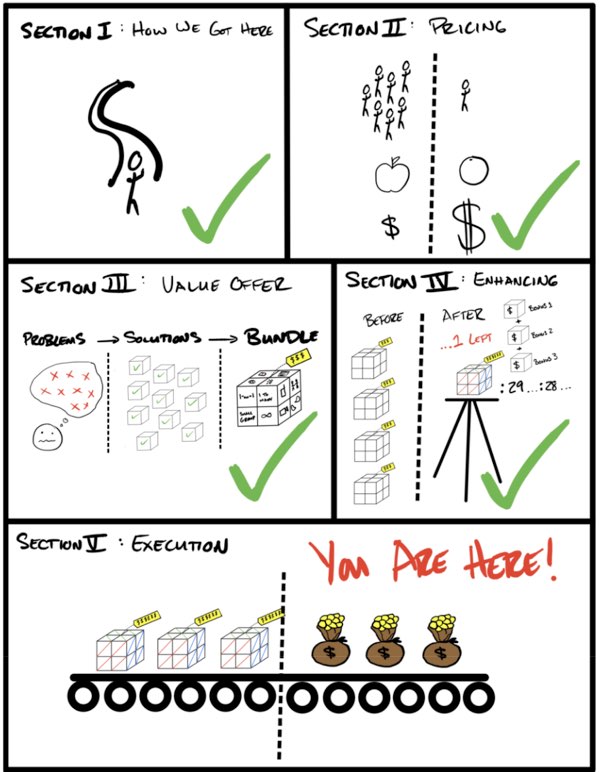 SECTION I : HOW WE GOT HERE
SECTION II : PRICING
$
$
SECTION III : VALUE OFFER
PROBLEMS → SOLUTIONS → BUNDLE
$$$
1-ON-1
SMALL GROUP
SECTION IV : ENHANCING
BEFORE
AFTER
...1 LEFT
$ BONUS 1
+
$ BONUS 2
+
$ BONUS 3
:29...:28...
SECTION V : EXECUTION
YOU ARE HERE!
$ $ $